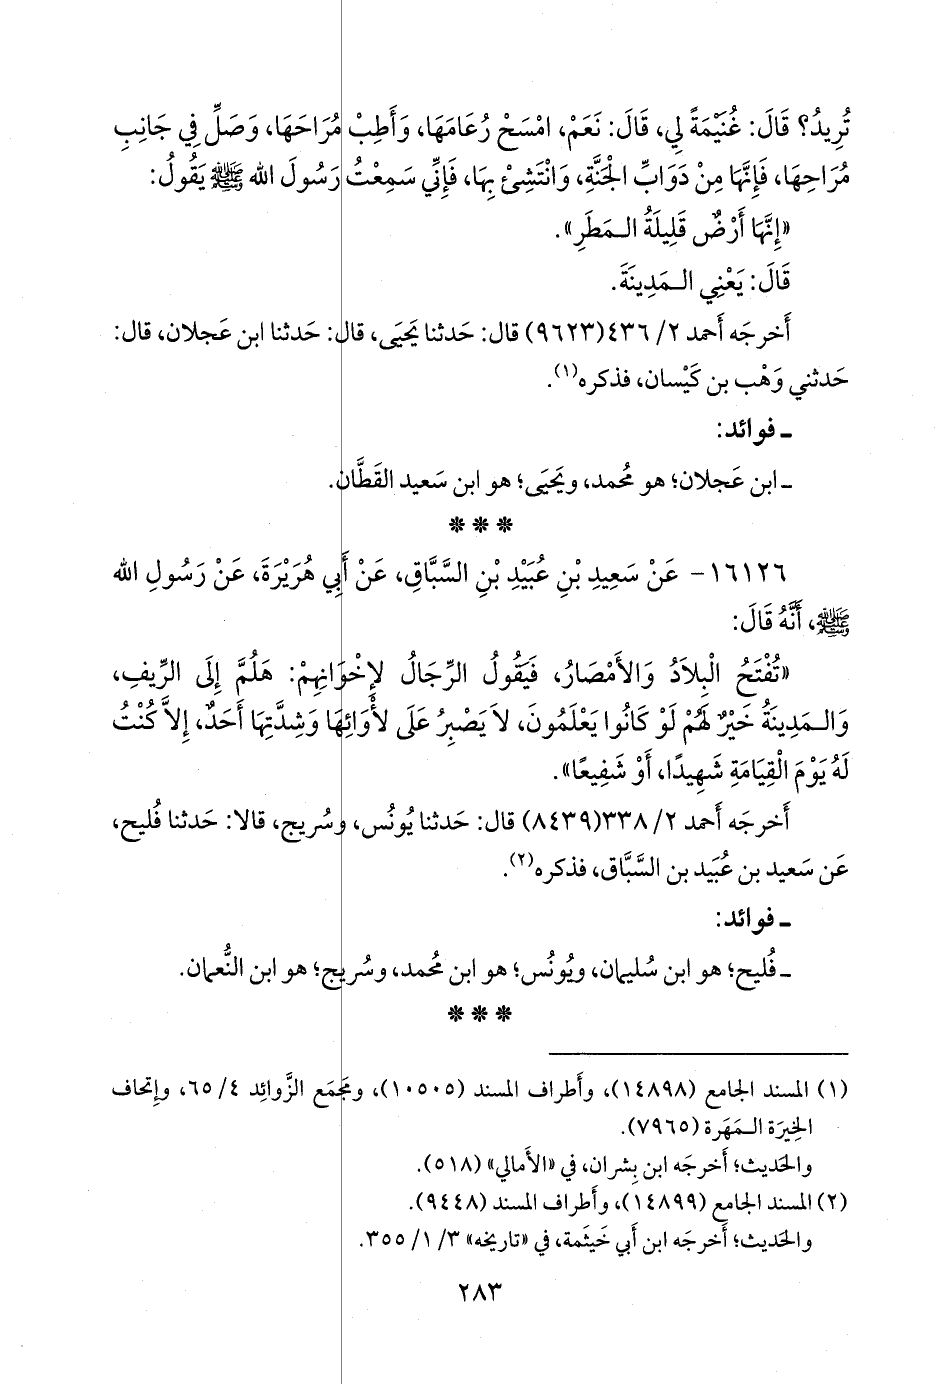 تُرِيدُ؟ قَالَ: غُنَيْمَةً لِي، قَالَ: نَعَمْ، امْسَحْ رُعَامَهَا، وَأَطِبْ مُرَاحَهَا، وَصَلِّ فِي جَانِبِ
مُرَاحِهَا، فَإِنَّهَا مِنْ دَوَابِّ الْجَنَّةِ، وَانْتَشِئْ بِهَا، فَإِنِّي سَمِعْتُ رَسُولَ الله ﷺ يَقُولُ:
«إِنَّهَا أَرْضٌ قَلِيلَةُ الْـمَطَرِ».
قَالَ: يَعْنِي الْـمَدِينَةَ.
أَخرجَه أَحمد ٢/ ٤٣٦(٩٦٢٣) قال: حَدثنا يَحيَى، قال: حَدثنا ابن عَجلان، قال:
حَدثني وَهْب بن كَيْسان، فذكره(١).
ـ فوائد:
ـ ابن عَجلان؛ هو مُحمد، ويَحيَى؛ هو ابن سَعيد القَطَّان.
* * *
١٦١٢٦- عَنْ سَعِيدِ بْنِ عُبَيْدِ بْنِ السَّبَّاقِ، عَنْ أَبِي هُرَيْرَةَ، عَنْ رَسُولِ الله
ﷺ، أَنَّهُ قَالَ:
«تُفْتَحُ الْبِلاَدُ وَالأَمْصَارُ، فَيَقُولُ الرِّجَالُ لإِخْوَانِهِمْ: هَلُمَّ إِلَى الرِّيفِ،
وَالْـمَدِينَةُ خَيْرٌ لَهُمْ لَوْ كَانُوا يَعْلَمُونَ، لاَ يَصْبِرُ عَلَى لأْوَائِهَا وَشِدَّتِهَا أَحَدٌ، إِلاَّ كُنْتُ
لَهُ يَوْمَ الْقِيَامَةِ شَهِيدًا، أَوْ شَفِيعًا».
أَخرجَه أَحمد ٢/ ٣٣٨(٨٤٣٩) قال: حَدثنا يُونُس، وسُريج، قالا: حَدثنا فُليح،
عَن سَعيد بن عُبَيد بن السَّبَّاق، فذكره(٢).
ـ فوائد:
ـ فُليح؛ هو ابن سُليمان، ويُونُس؛ هو ابن مُحمد، وسُريج؛ هو ابن النُّعمان.
* * *
(١) المسند الجامع (١٤٨٩٨)، وأَطراف المسند (١٠٥٠٥)، ومَجمَع الزَّوائِد ٤/ ٦٥، وإِتحاف
الخِيرَة الـمَهَرة (٧٩٦٥).
والحَديث؛ أَخرجَه ابن بِشران، في «الأَمالي» (٥١٨).
(٢) المسند الجامع (١٤٨٩٩)، وأَطراف المسند (٩٤٤٨).
والحَديث؛ أَخرجَه ابن أَبي خَيثَمة، في «تاريخه» ٣/ ١/ ٣٥٥.
٢٨٣